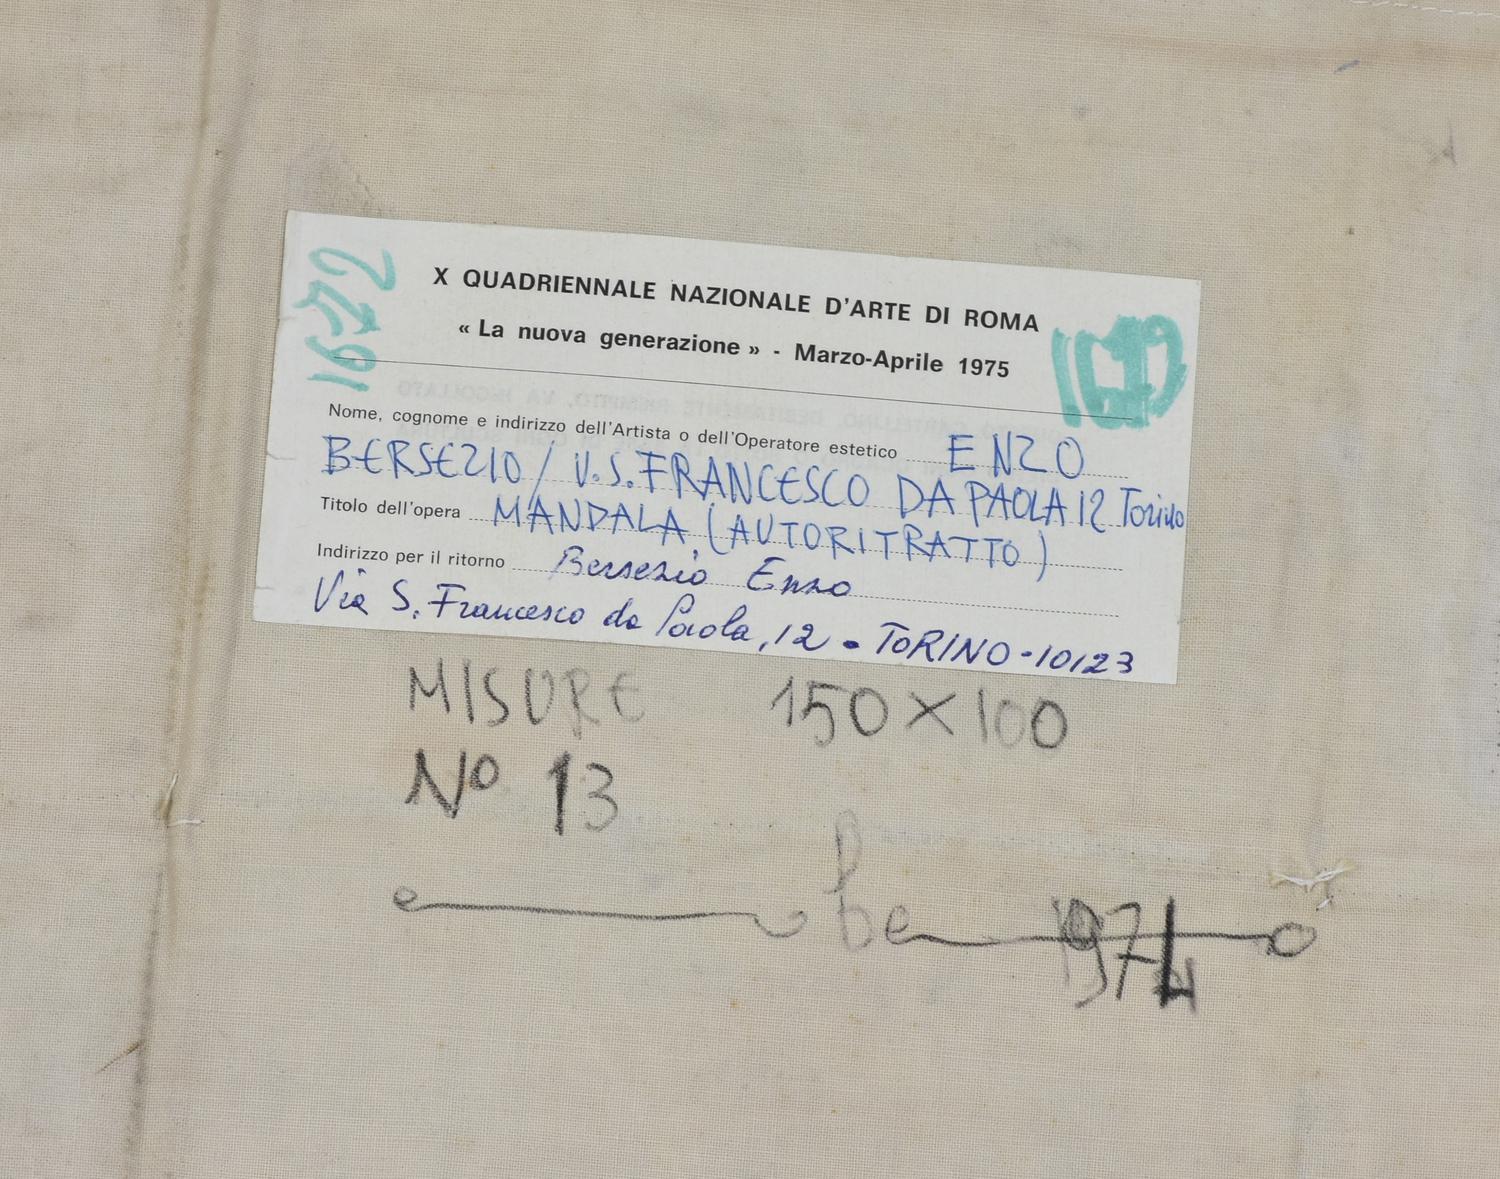 X QUADRIENNALE NAZIONALE D'ARTE DI ROMA
« La nuova generazione » - Marzo-Aprile 1975
Nome, cognome e indirizzo dell'Artista o dell'Operatore estetico ENZO
BERSEZIO / V. S. FRANCESCO DA PAOLA 12 Torino
Titolo dell'opera MANDALA (AUTORITRATTO)
Indirizzo per il ritorno Bersezio Enzo
Via S. Francesco da Paola, 12 - TORINO - 10123
MISURE 150 × 100
Nº 13
1974